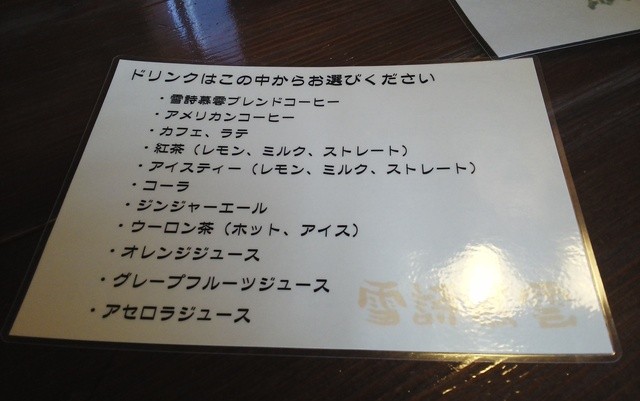 ドリンクはこの中からお選びください
・雪詩慕雫ブレンドコーヒー
・アメリカンコーヒー
・カフェ、ラテ
・紅茶（レモン、ミルク、ストレート）
・アイスティー（レモン、ミルク、ストレート）
・コーラ
・ジンジャーエール
・ウーロン茶（ホット、アイス）
・オレンジジュース
・グレープフルーツジュース
・アセロラジュース
雪詩